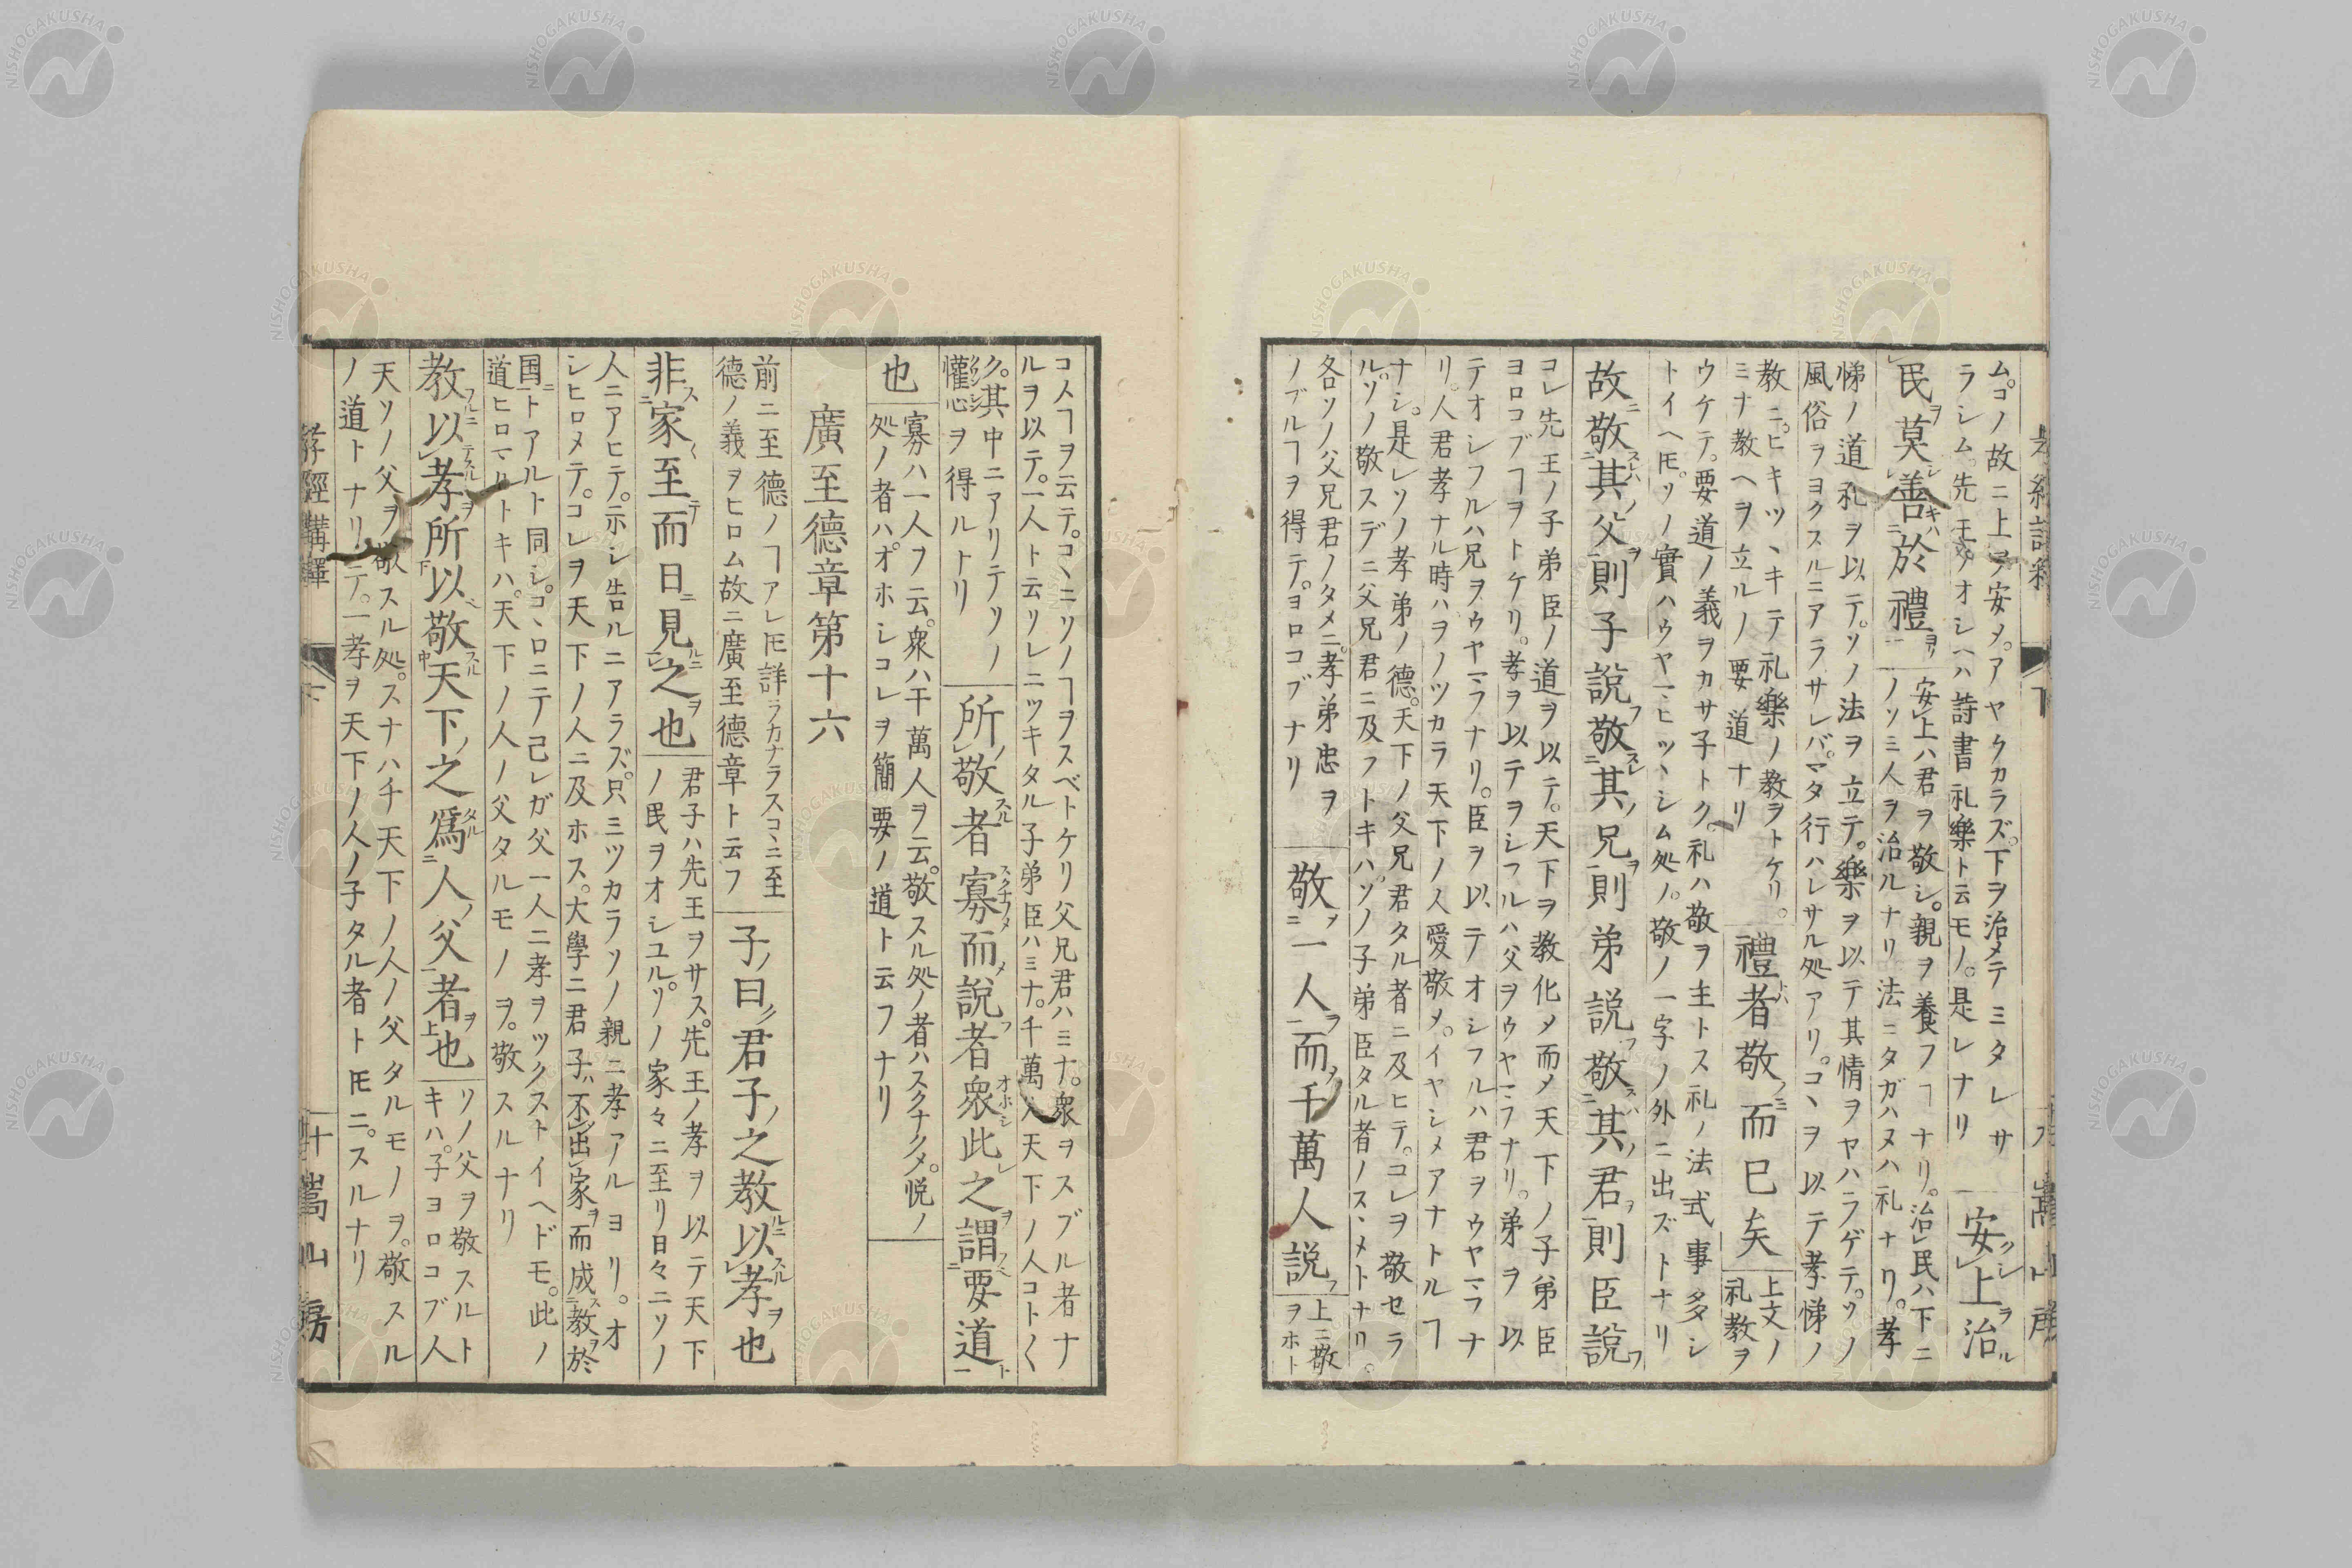 ム。コノ故ニ上ヲ安メ。アヤウカラズ。下ヲ治メテミタレサ
ラシム。先王ノオシヘハ詩書礼樂ト云モノ。是レナリ
安上治
民莫善於禮
安上ハ君ヲ敬シ。親ヲ養フヿナリ。治民ハ下ニ
ノソミ人ヲ治ルナリ法ニタガハヌハ礼ナリ。孝
悌ノ道礼ヲ以テ。ソノ法ヲ立テ。樂ヲ以テ其情ヲヤハラゲテ。ソノ
風俗ヲヨクスルニアラサレバ。マタ行ハレサル処アリ。コヽヲ以テ孝悌ノ
教ニ。ヒキツヽキテ礼樂ノ教ヲトケリ。
ミナ教ヘヲ立ルノ要道ナリ
禮者敬而已矣
上文ノ
礼教ヲ
ウケテ。要道ノ義ヲカサ子トク。礼ハ敬ヲ主トス礼ノ法式事多シ
トイヘ𪜈。ソノ實ハウヤマヒツヽシム処ノ。敬ノ一字ノ外ニ出ズトナリ
故敬其父則子説敬其兄則弟説敬其君則臣説
コレ先王ノ子弟臣ノ道ヲ以テ。天下ヲ教化メ而メ天下ノ子弟臣
ヨロコブヿヲトケリ。孝ヲ以テヲシフルハ父ヲウヤマフナリ。弟ヲ以
テオシフルハ兄ヲウヤマフナリ。臣ヲ以テオシフルハ君ヲウヤマフナ
リ。人君孝ナル時ハヲノツカラ天下ノ人愛敬メ。イヤシメアナトルヿ
ナシ。是レソノ孝弟ノ德。天下ノ父兄君タル者ニ及ヒテ。コレヲ敬セラ
ル。ソノ敬スデニ父兄君ニ及フトキハ。ソノ子弟臣タル者ノスヽメトナリ。
各ソノ父兄君ノタメニ。孝弟忠ヲ
ノブルヿヲ得テ。ヨロコブナリ
敬一人而千萬人説
上ニ敬
ヲホト
コスヿヲ云テ。コヽニソノヿヲスベトケリ父兄君ハミナ。衆ヲスブル者ナ
ルヲ以テ。一人ト云ソレニツキタル子弟臣ハミナ。千萬人天下ノ人コト〱
ク。其中ニアリテソノ
懽心ヲ得ルトリ
所敬者寡而説者衆此之謂要道
也
寡ハ一人ヲ云。衆ハ千萬人ヲ云。敬スル処ノ者ハスクナクメ。悦ノ
処ノ者ハ。オホシコレヲ簡要ノ道ト云フナリ
廣至德章第十六
前ニ至德ノヿアレ𪜈詳ラカナラスコヽニ至
德ノ義ヲヒロム故ニ廣至德章ト云フ
子曰君子之教以孝也
非家至而日見之也
君子ハ先王ヲサス。先王ノ孝ヲ以テ天下
ノ民ヲオシユル。ソノ家々ニ至リ日々ニソノ
人ニアヒテ。示シ告ルニアラズ。只ミツカラソノ親ニ孝アルヨリ。オ
シヒロメテ。コレヲ天下ノ人ニ及ホス。大學ニ君子ハ不出家而成教於
国トアルト同シ。コヽロニテ己レガ父一人ニ孝ヲツクストイヘドモ。此ノ
道ヒロマルトキハ。天下ノ人ノ父タルモノヲ。敬スルナリ
教以孝所以敬天下之爲人父者也
ソノ父ヲ敬スルト
キハ。子ヨロコブ人
天ソノ父ヲ敬スル処。スナハチ天下ノ人ノ父タルモノヲ。敬スル
ノ道トナリテ。一孝ヲ天下ノ人ノ子タル者ト𪜈ニ。スルナリ
孝經講釋 下 十 嵩山房